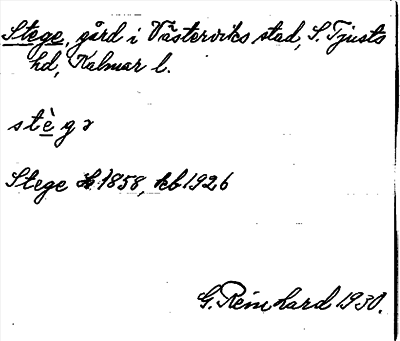 Stege, gård i Västerviks stad, S. Tjusts
hd, Kalmar l.
stè̲gə
Stege 1858, kb 1926
G. Reinhard 1930.